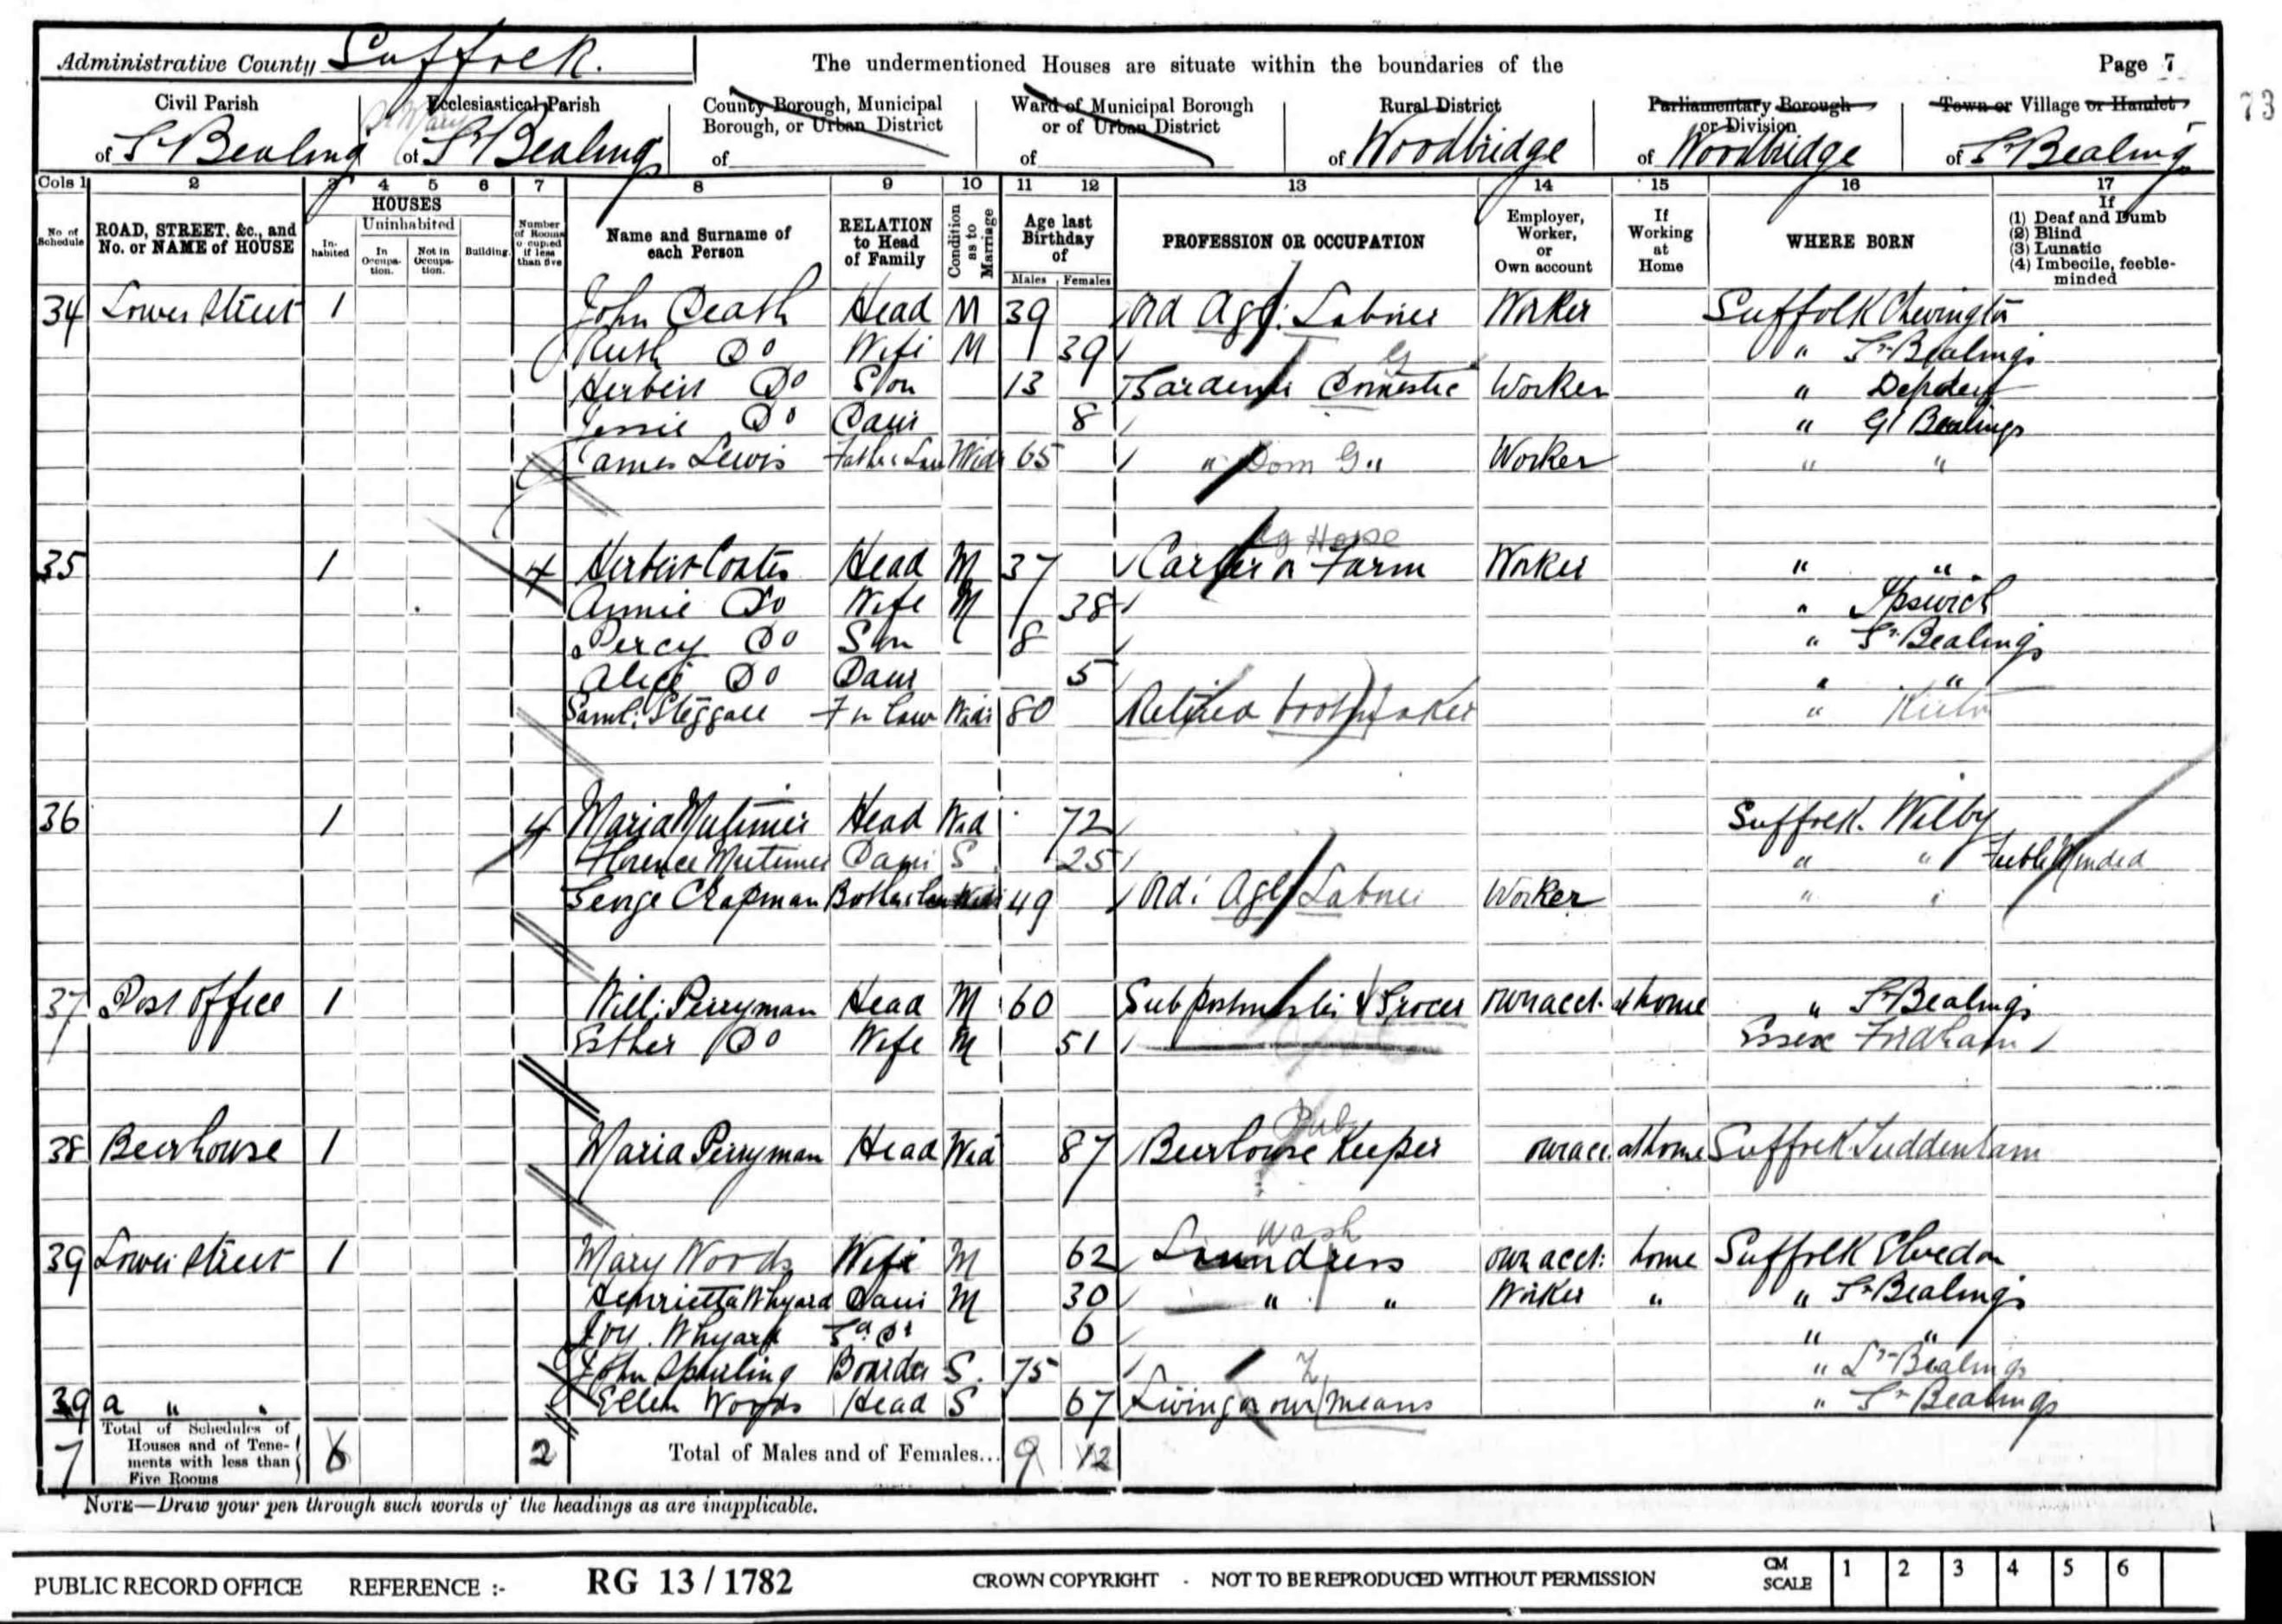 Administrative County Suffolk.
The undermentioned Houses are situate within the boundaries of the
Page 7
73
Civil Parish
of Gt Bealings
Ecclesiastical Parish
St Mary
of Gt Bealings
County Borough, Municipal Borough, or Urban District
of
Ward of Municipal Borough or of Urban District
of
Rural District
of Woodbridge
Parliamentary Borough or Division
of Woodbridge
Town or Village or Hamlet
of Gt Bealings
Cols 1 2 3 4 5 6 7 8 9 10 11 12 13 14 15 16 17
No of Schedule
ROAD, STREET, &c., and No. or NAME of HOUSE
HOUSES
Inhabited
Uninhabited
In Occupation.
Not in Occupation.
Building.
Number of Rooms occupied if less than five
Name and Surname of each Person
RELATION to Head of Family
Condition as to Marriage
Age last Birthday of
Males Females
PROFESSION OR OCCUPATION
Employer, Worker, or Own account
If Working at Home
WHERE BORN
If
(1) Deaf and Dumb
(2) Blind
(3) Lunatic
(4) Imbecile, feeble-minded
34 Lower Street 1 John Death Head M 39 Ord Agl: Labrer Worker Suffolk Chevington
Ruth Do Wife M 39 " Gt Bealings
Herbert Do Son 13 Gardener Domestic Worker " Depden
Jessie Do Daur 8 " Gt Bealings
James Lewis Father Law Widr 65 " Dom G " Worker " "
Ag Horse
35 1 4 Herbert Coates Head M 37 Carter on Farm Worker " "
Annie Do Wife M 38 " Ipswich
Percy Do Son 8 " Gt Bealings
Alice Do Daur 5 " "
Saml: Steggall F in law Widr 80 Retired bootmaker "
36 1 4 Maria Mutimer Head Wid 72 Suffolk. Wilby
Florence Mutimer Daur S 25 " " Feeble Minded
George Chapman Brother law Widr 49 Ord: Agl Labrer Worker " "
37 Post Office 1 Will: Perryman Head M 60 Sub postmaster & Grocer own acct. at home " Gt Bealings
Esther Do Wife M 51 Essex
Pub
38 Beerhouse 1 Maria Perryman Head Wid 87 Beerhouse Keeper own acc. at home Suffolk Tuddenham
Wash
39 Lower Street 1 Mary Woods Wife M 62 Laundress own acct: home Suffolk Elvedon
Henrietta Whyard Daur M 30 " " Worker " " Gt Bealings
Ivy. Whyard Gd Dr 6 " "
John Spurling Boarder S. 75 " Lt Bealings
39 a " " Ellen Woods Head S 67 Living on own means " Gt Bealings
7 Total of Schedules of Houses and of Tenements with less than Five Rooms 6 2 Total of Males and of Females... 9 12
NOTE—Draw your pen through such words of the headings as are inapplicable.
PUBLIC RECORD OFFICE REFERENCE :- RG 13 / 1782 CROWN COPYRIGHT - NOT TO BE REPRODUCED WITHOUT PERMISSION CM SCALE 1 2 3 4 5 6